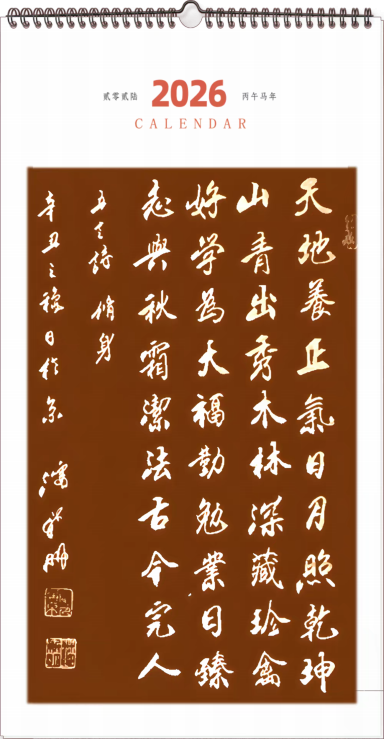 贰零贰陆 2026 丙午马年
CALENDAR
天地養正氣日月照乾坤
山青出秀木林深藏珍禽
好学為大福勤勉業日臻
志與秋霜潔法古今完人
五言诗 脩身
辛丑之穐日於京